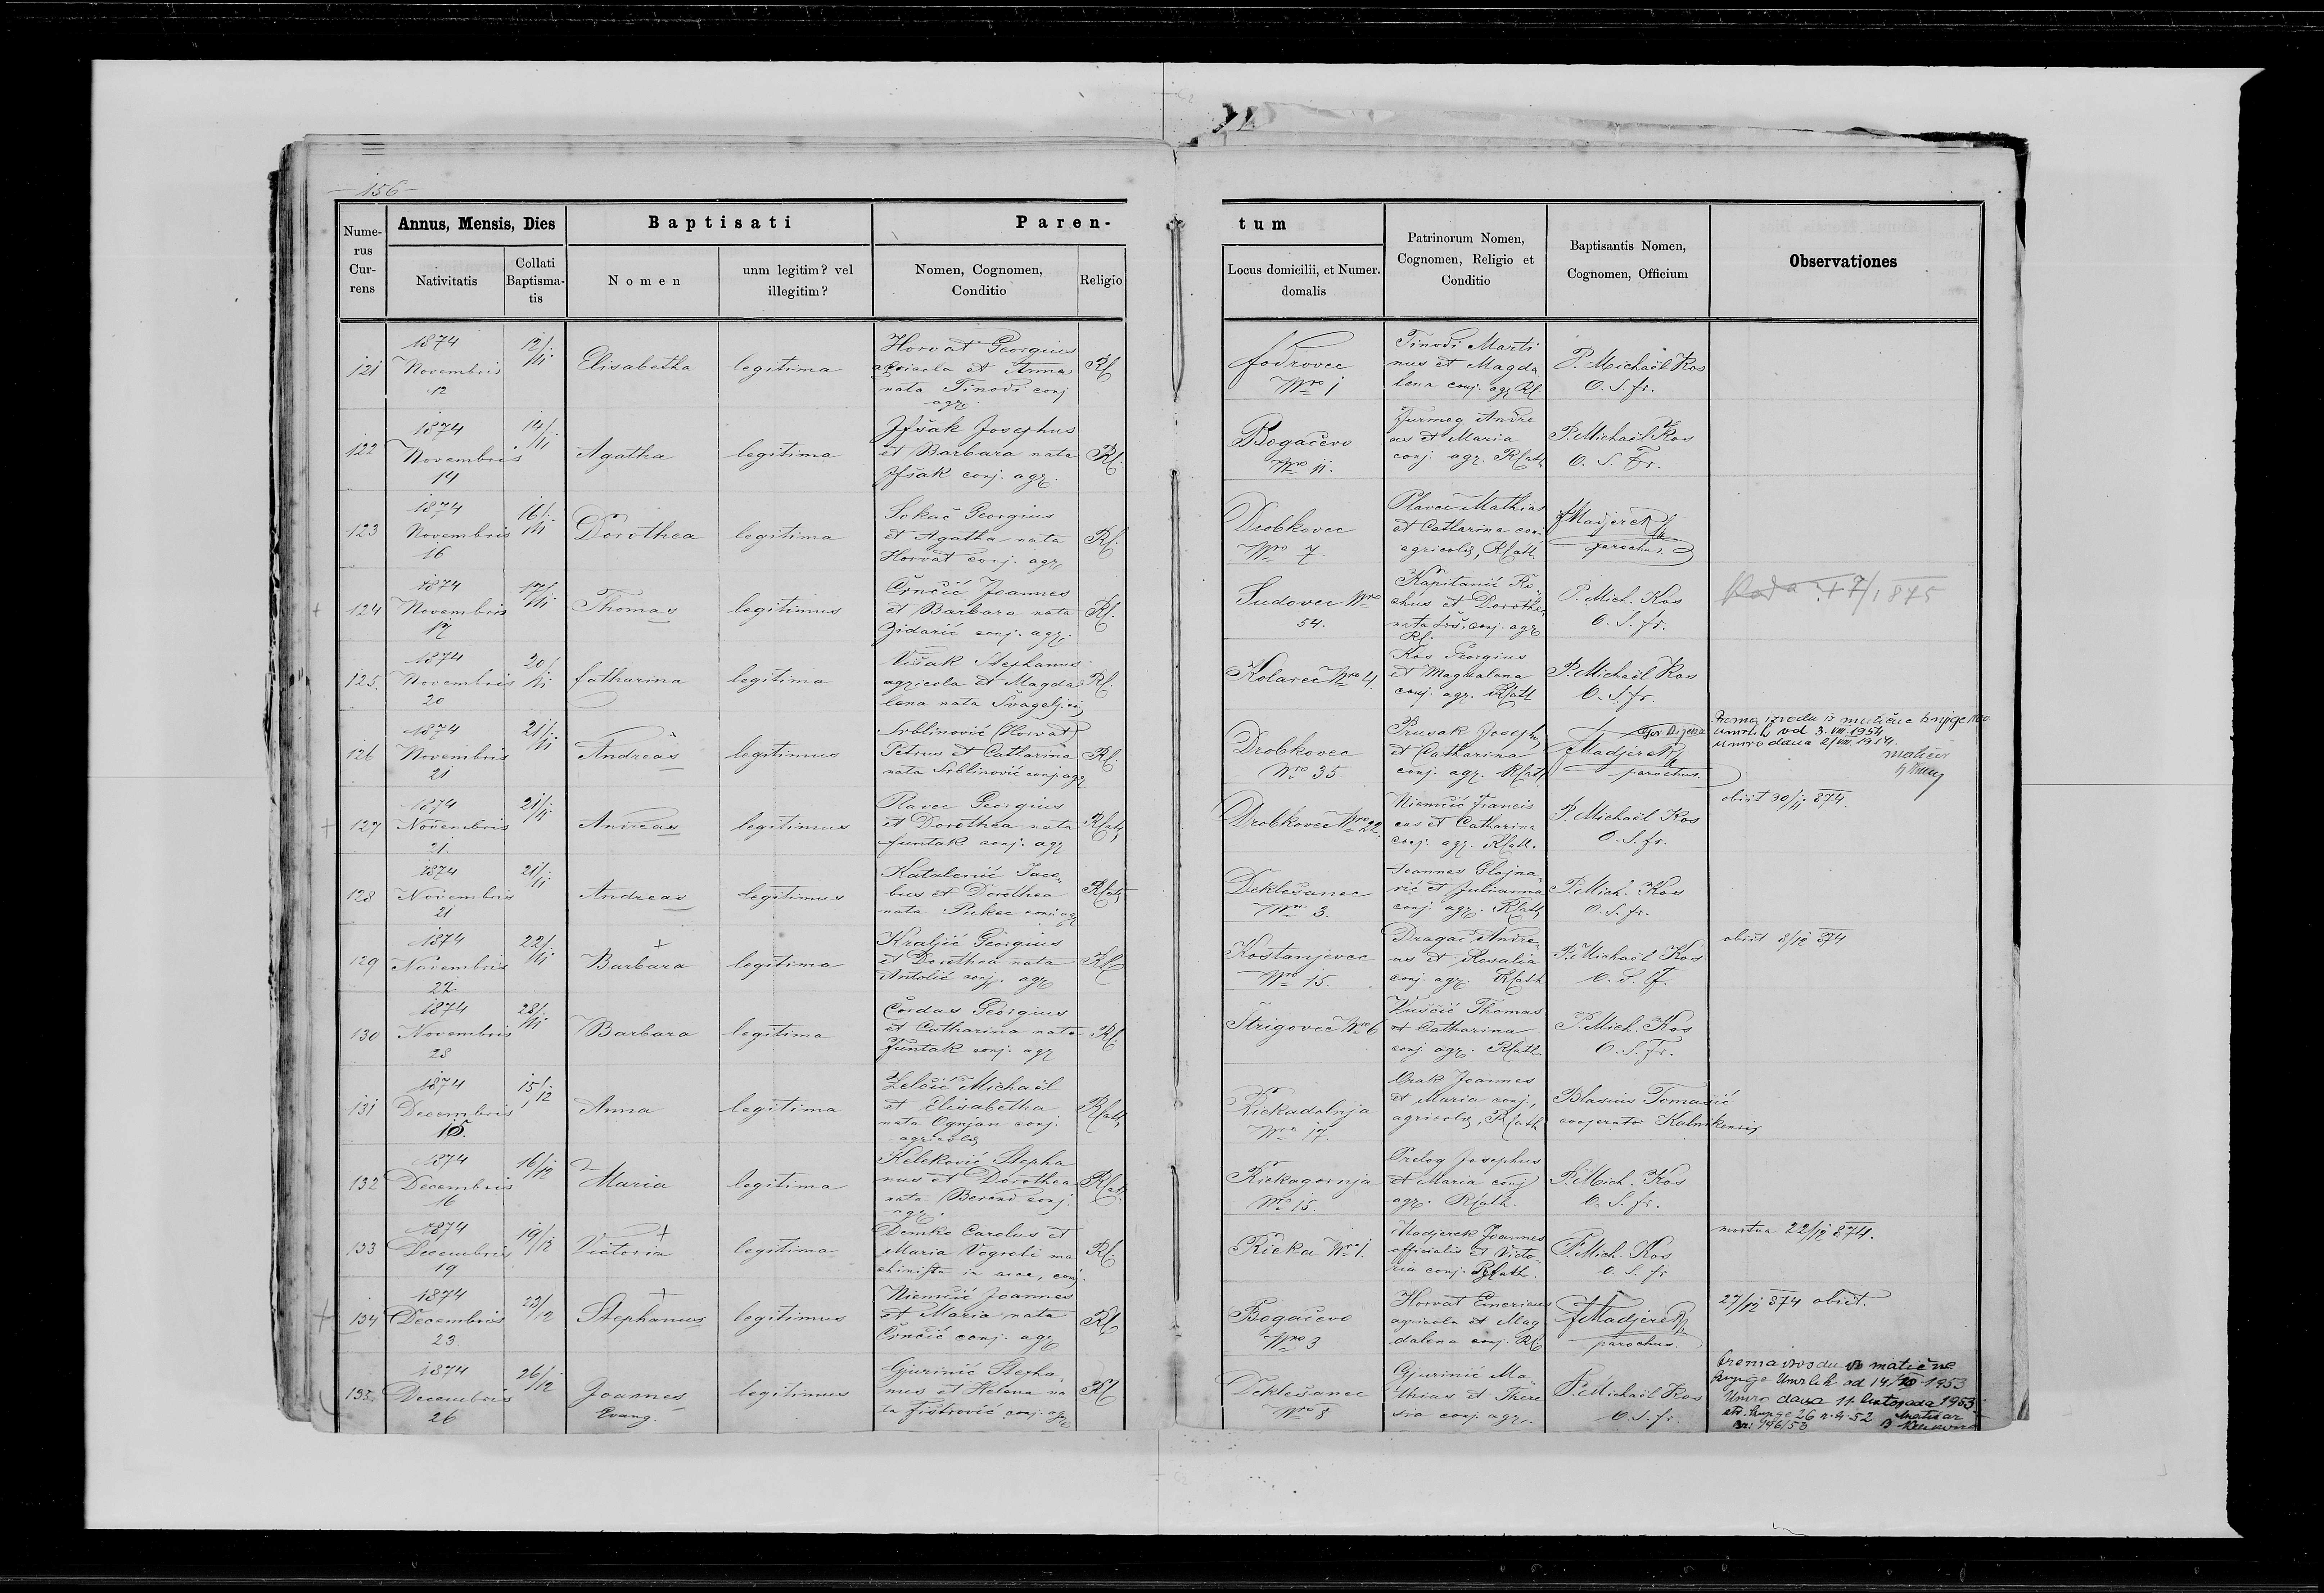 - 156 -
Numerus Currens
Annus, Mensis, Dies
Baptisati
Paren-
tum
Patrinorum Nomen, Cognomen, Religio et Conditio
Baptisantis Nomen, Cognomen, Officium
Observationes
Nativitatis
Collati Baptismatis
Nomen
unm legitim? vel illegitim?
Nomen, Cognomen, Conditio
Religio
Locus domicilii, et Numer. domalis
121 1874 Novembris 12 12/11 Elisabetha legitima
Horvat Georgius
agricola et Anna
nata Tinodi conj
agr.
RC
Fodrovec Nro 1
Tinodi Marti
nus et Magda
lena conj. agr RC
P. Michaël Kos
O. S. Fr.
122 1874 Novembris 14 14/11 Agatha legitima
Josephus
et Barbara nata
conj. agr.
RC.
Bogačevo Nro 11.
Andre
as et Maria
conj. agr. RCath
P. Michaël Kos
O. S. Fr.
123 1874 Novembris 16 16/11 Dorothea legitima
Sokač Georgius
et Agatha nata
Horvat conj. agr
RC.
Drobkovec Nro 7.
Plavec Mathias
et Catharina conj
agricolæ, RCath.
F Madjerek
parochus.
124 1874 Novembris 17 17/11 Thomas legitimus
Črnčić Joannes
et Barbara nata
Zidarić conj. agr.
RC.
Sudovec Nro 54.
Kapitanić Ro-
chus et Dorothea
nata conj. agr
RC.
P. Mich. Kos
O. S. fr.
1875
125. 1874 Novembris 20 20/11 Catharina legitima
Višak Stephanus
agricola et Magda
lena nata
RC.
Kolarec Nro 4.
Kos Georgius
et Magdalena
conj. agr. RCath
P. Michaël Kos
O. S. fr.
126 1874 Novembris 21 21/11 Andreas legitimus
Srblinović (Horvat)
Petrus et Catharina
nata Srblinović conj. agr
RC.
Drobkovec Nro 35.
Prusak Joseph
et Catharina
conj. agr. RCath
F Madjerek
parochus.
Prema izvodu iz matične knjige
umrlih od 3. VIII. 1954
umro dana 2/VIII. 1954.
matičar
127 1874 Novembris 21. 21/11 Andreas legitimus
Plavec Georgius
et Dorothea nata
Funtak conj. agr
RCath
Drobkovec Nro 22.
Niemčić Francis
cus et Catharina
conj. agr. RCath.
P. Michaël Kos
O. S. fr.
obiit 30/11 874.
128 1874 Novembris 21 21/11 Andreas legitimus
Katalenić Jaco-
bus et Dorothea
nata Pukec conj. agr
RCath
Deklešanec Nro 3.
Joannes Glojna-
rić et Julianna
conj. agr. RCath
P. Mich. Kos
O. S. fr.
129 1874 Novembris 22. 22/11 Barbara legitima
Kraljić Georgius
et Dorothea nata
Antolić conj. agr
RC
Kostanjevec Nro 15.
Dragač Andre-
as et Rosalia
conj. agr. RCath
P. Michaël Kos
O. S. fr.
obiit 8/12 874
130 1874 Novembris 28 28/11 Barbara legitima
Čordas Georgius
et Catharina nata
Funtak conj. agr
RC.
Štrigovec Nro 6
Vuščić Thomas
et Catharina
conj agr. RCath.
P. Mich. Kos
O. S. Fr.
131 1874 Decembris 15. 15/12 Anna legitima
Zelčić Michaël
et Elisabetha
nata Ognjan conj.
agricolæ
RCath
Riekadolnja Nro 17.
Joannes
et Maria conj,
agricolæ, RCath
Blasius Tomašić
cooperator Kalnikensis
132 1874 Decembris 16 16/12 Maria legitima
Keleković Stepha
nus et Dorothea
nata Berend conj.
agr.
RCath.
Riekagornja Nro 15.
Prelog Josephus
et Maria conj
agr. RCath.
P. Mich. Kos
O. S. fr.
133 1874 Decembris 19 19/12 Victoria legitima
Demko Carolus et
Maria ma
chinista conj.
RC.
Rieka Nro 1.
Madjerek Joannes
officialis et Victo-
ria conj. RCath.
P. Mich. Kos
O. S. fr
mortua 22/12 874.
134 1874 Decembris 23 23/12 Stephanus legitimus
Niemčić Joannes
et Maria nata
Črnčić conj. agr
RC
Bogačevo Nro 3
Horvat Emericus
agricola et Mag
dalena conj. RC
F Madjerek
parochus.
27/12 874 obiit.
135. 1874 Decembris 26 26/12 Joannes Evang. legitimus
Gjurinić Stepha-
nus et Helena na
ta Fistrović conj. agr
RC
Deklešanec Nro 8
Gjurinić Ma-
thias et There
sia conj. agr.
P. Michaël Kos
O. S. fr.
Prema izvodu iz matične
knjige Umrlih od 14/XI 1953
Umro dana 11. listopada 1953
str. knjige 26 r. b. 52 Matičar
146/53